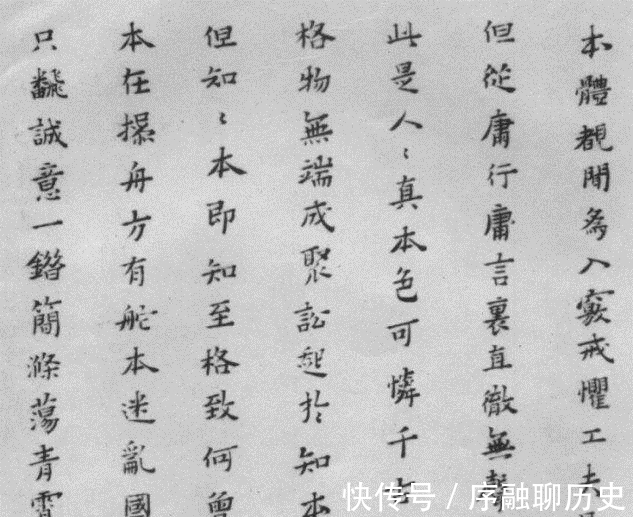 本體覩聞為入竅戒懼工夫
但從庸行庸言裏直徹無聲
此是人〻真本色可憐千
格物無端成聚訟起於知本
但知〻本即知至格致何曾
本在操舟方有舵本迷亂國
只飜誠意一鐕簡滌蕩青霄
快传号 / 序融聊历史